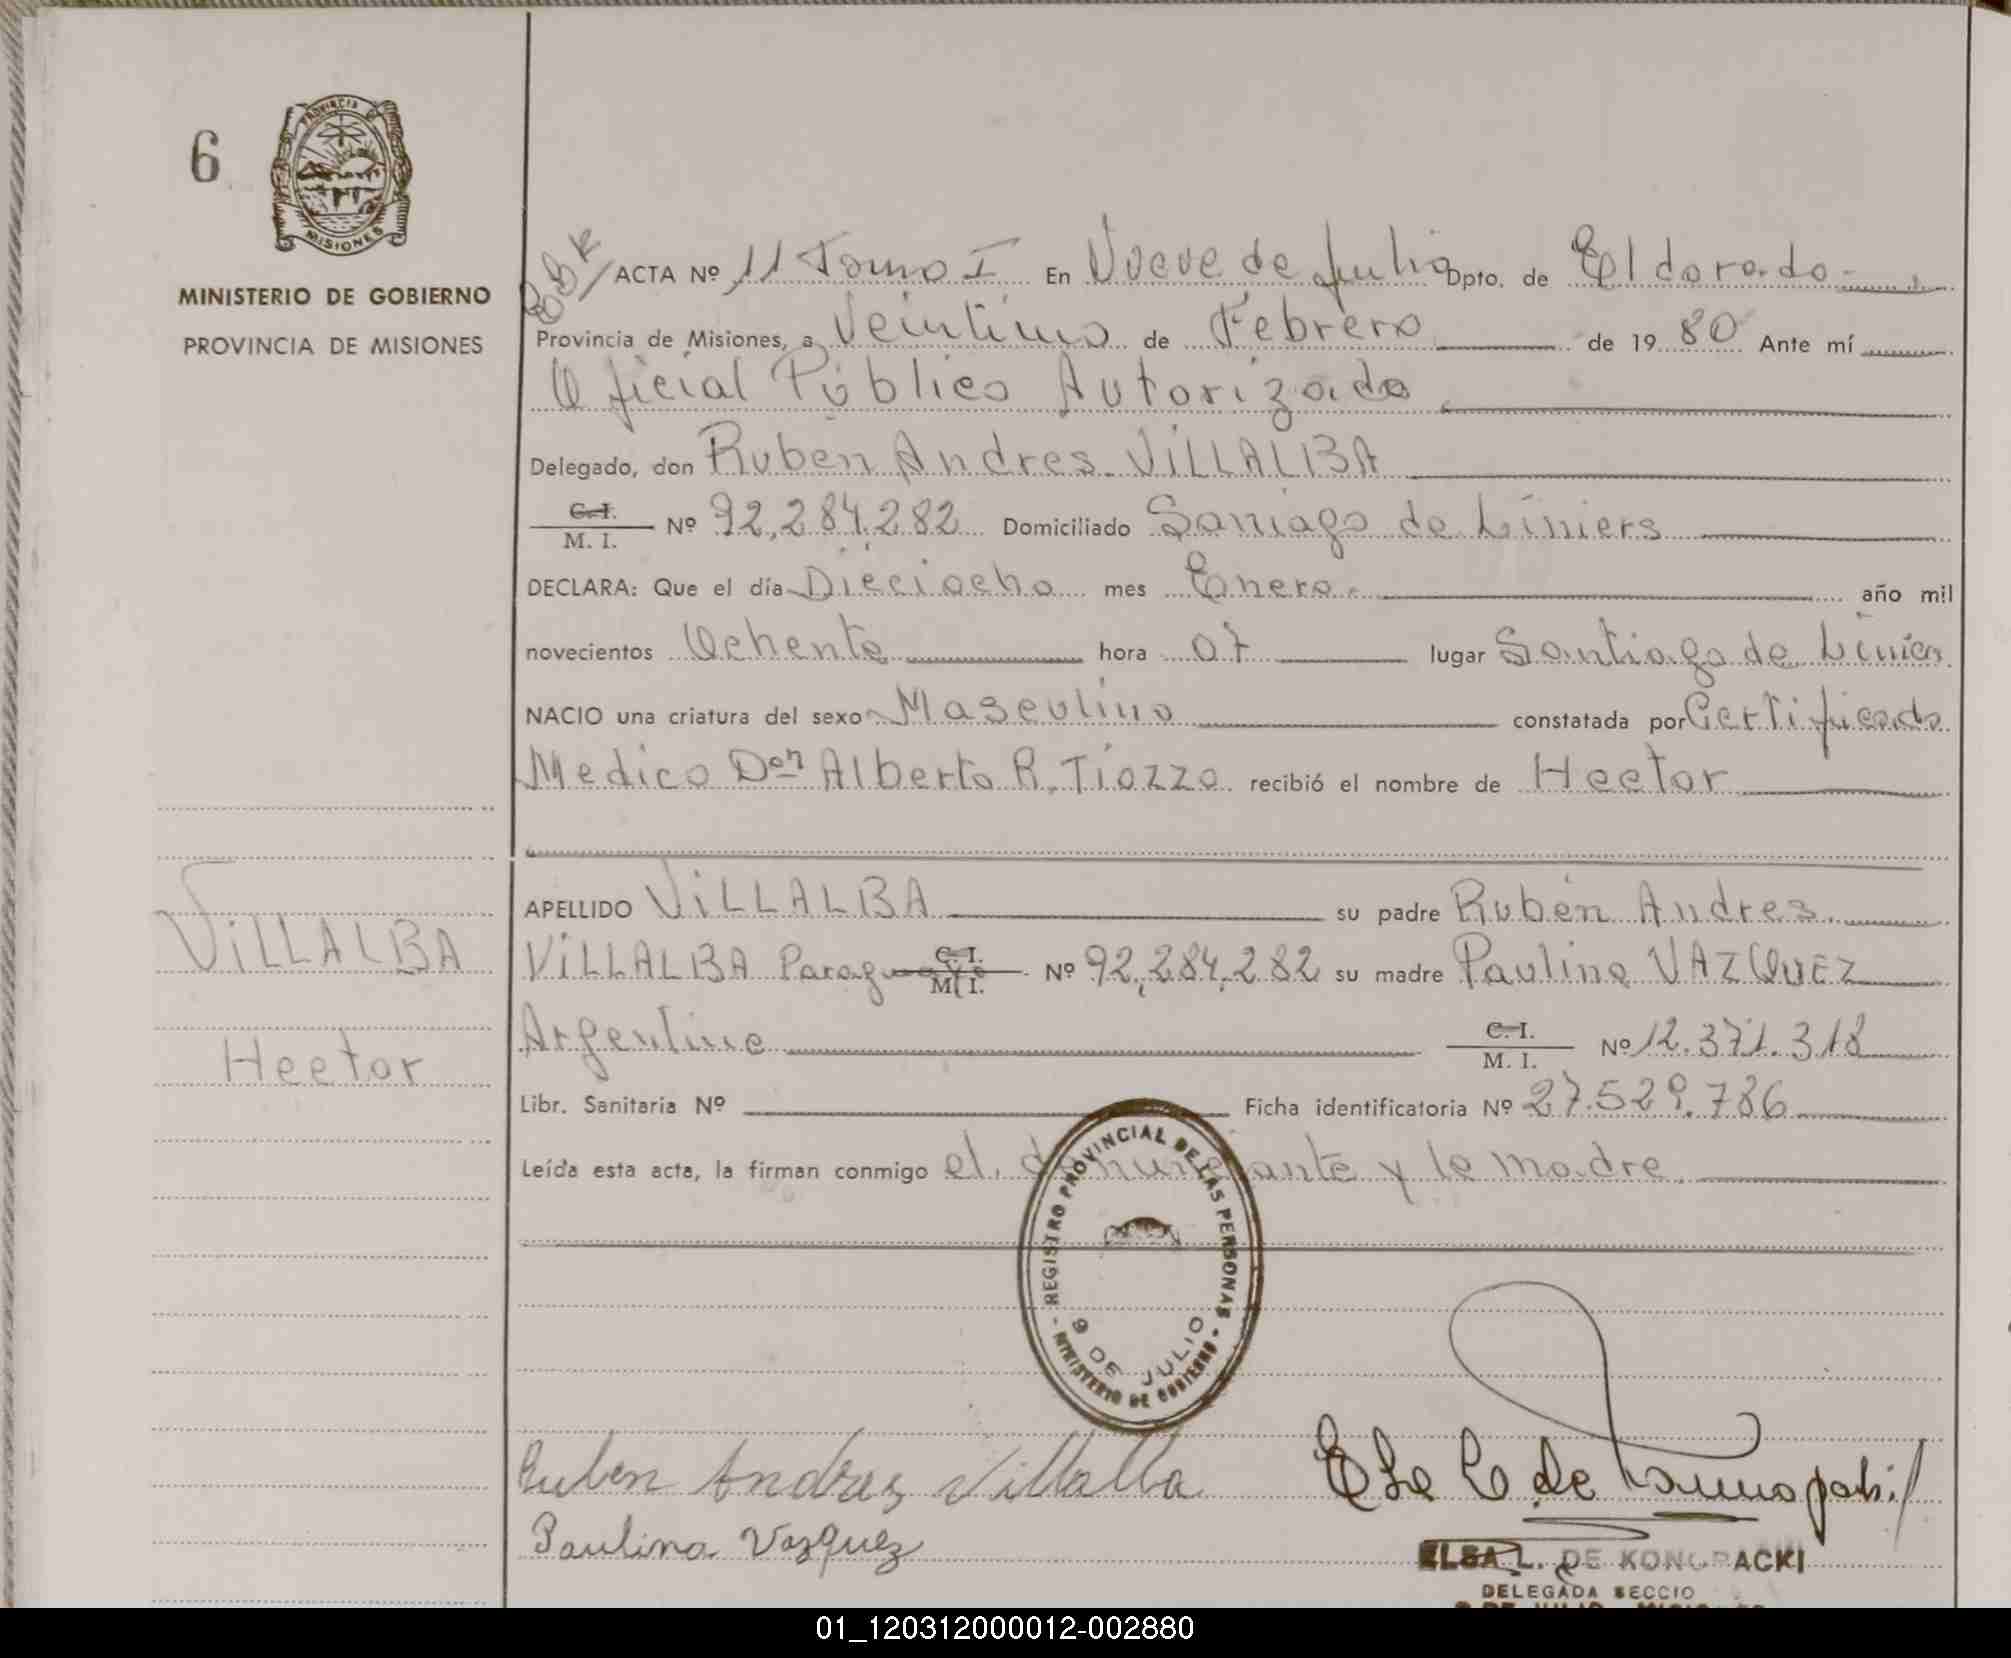 6
PROVINCIA DE
MISIONES
MINISTERIO DE GOBIERNO
PROVINCIA DE MISIONES
ACTA Nº 11 Tomo I En Nueve de Julio Dpto. de Eldorado
Provincia de Misiones, a Veintiuno de Febrero de 19 80 Ante mí
Oficial Público Autorizado
Delegado, don Rubén Andres VILLALBA
C. I.
M. I. Nº 92,284.282 Domiciliado Santiago de Liniers
DECLARA: Que el día Dieciocho mes Enero año mil
novecientos Ochenta hora 07 lugar Santiago de Liniers
NACIO una criatura del sexo Masculino constatada por Certificado
Medico Don Alberto R. Tiozzo recibió el nombre de Hector
APELLIDO VILLALBA su padre Rubén Andres
VILLALBA Paraguayo C. I. M. I. Nº 92,284.282 su madre Paulina VAZQUEZ
Argentina C. I. M. I. Nº 12.371.318
Libr. Sanitaria Nº Ficha identificatoria Nº 27.529.786
Leída esta acta, la firman conmigo el denunciante y la madre
VILLALBA
Hector
REGISTRO PROVINCIAL DE LAS PERSONAS
9 DE JULIO
MINISTERIO DE GOBIERNO
Ruben Andres Villalba
Paulina Vazquez
ELSA L. DE KONOPACKI
DELEGADA SECCIO
9 DE JULIO - MISIONES
01_120312000012-002880